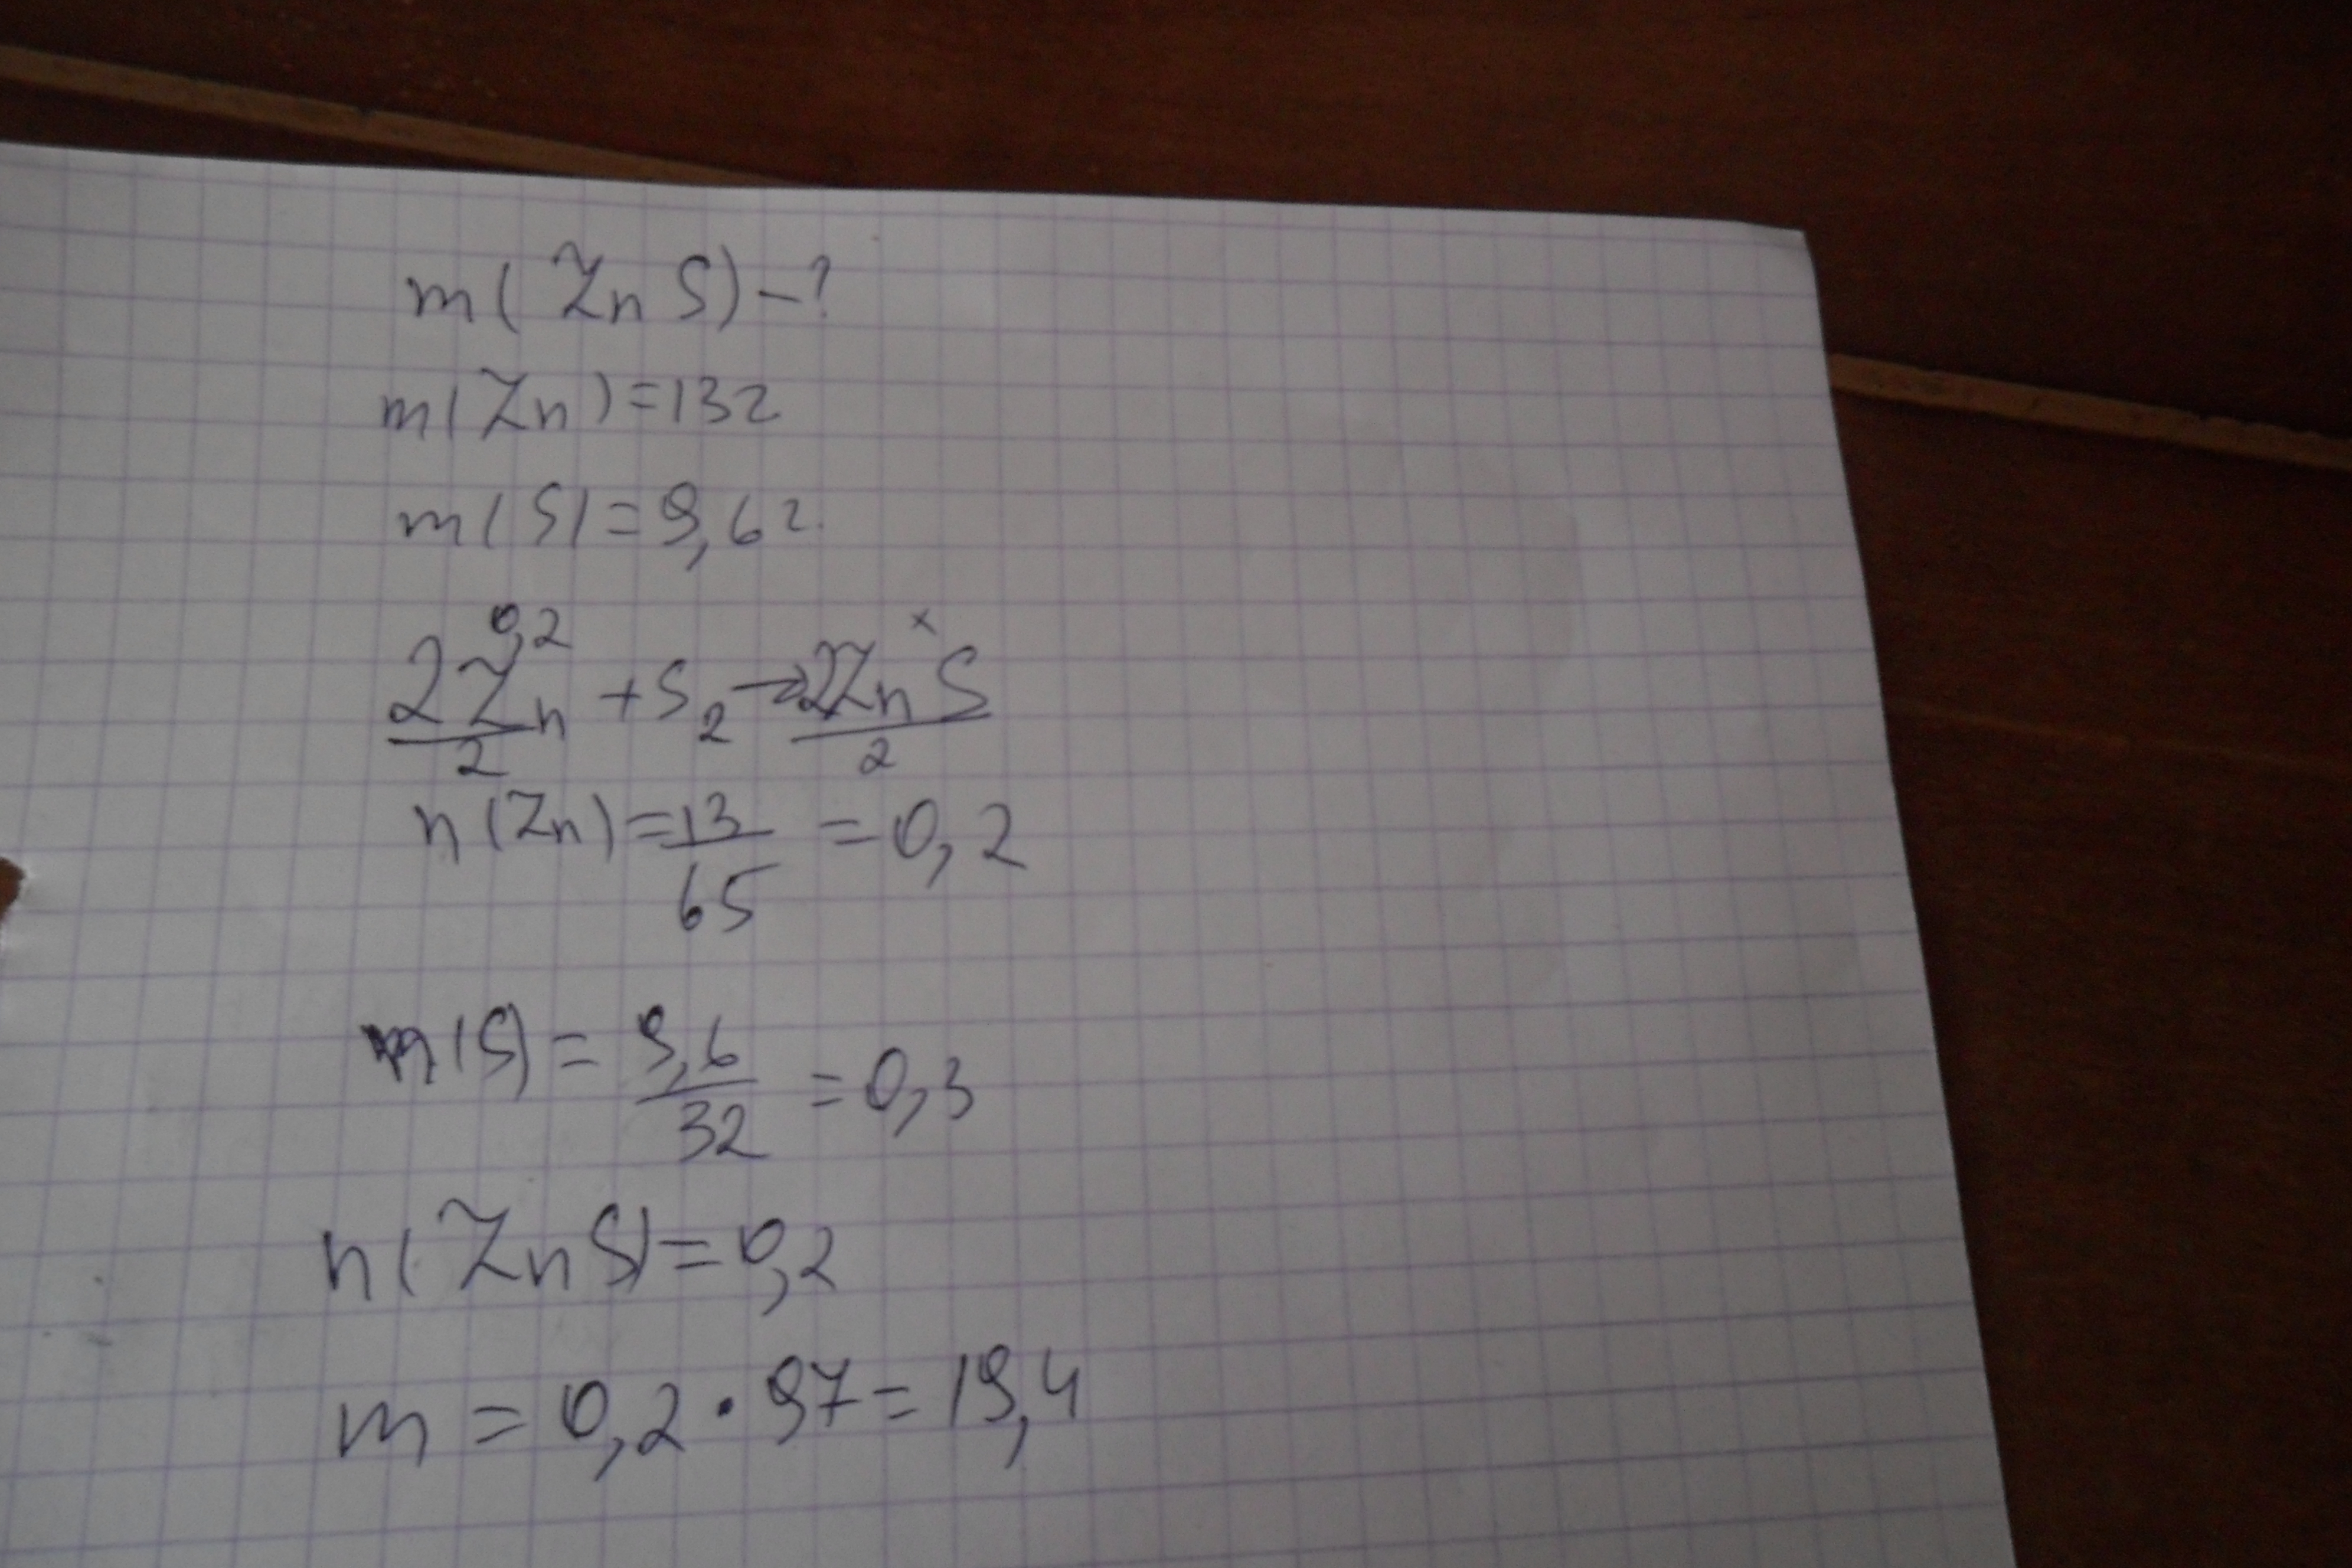 m(ZnS)-?
m(Zn)=13г
m(S)=9,6г.
0,2 x
2Zn + S2 → 2ZnS
2 2
n(Zn)=13/65=0,2
n(S)=9,6/32=0,3
n(ZnS)=0,2
m=0,2·97=19,4